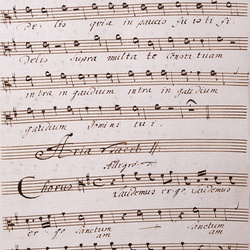 delis quia in pauca fuisti fi-
delis supra multa te constituam
intra in gaudium intra in gaudium
gaudium Domini tui.
Aria tacet
Allegro
Chorus
Laudemus ergo laudemus
ergo sanctum sanctum
am am